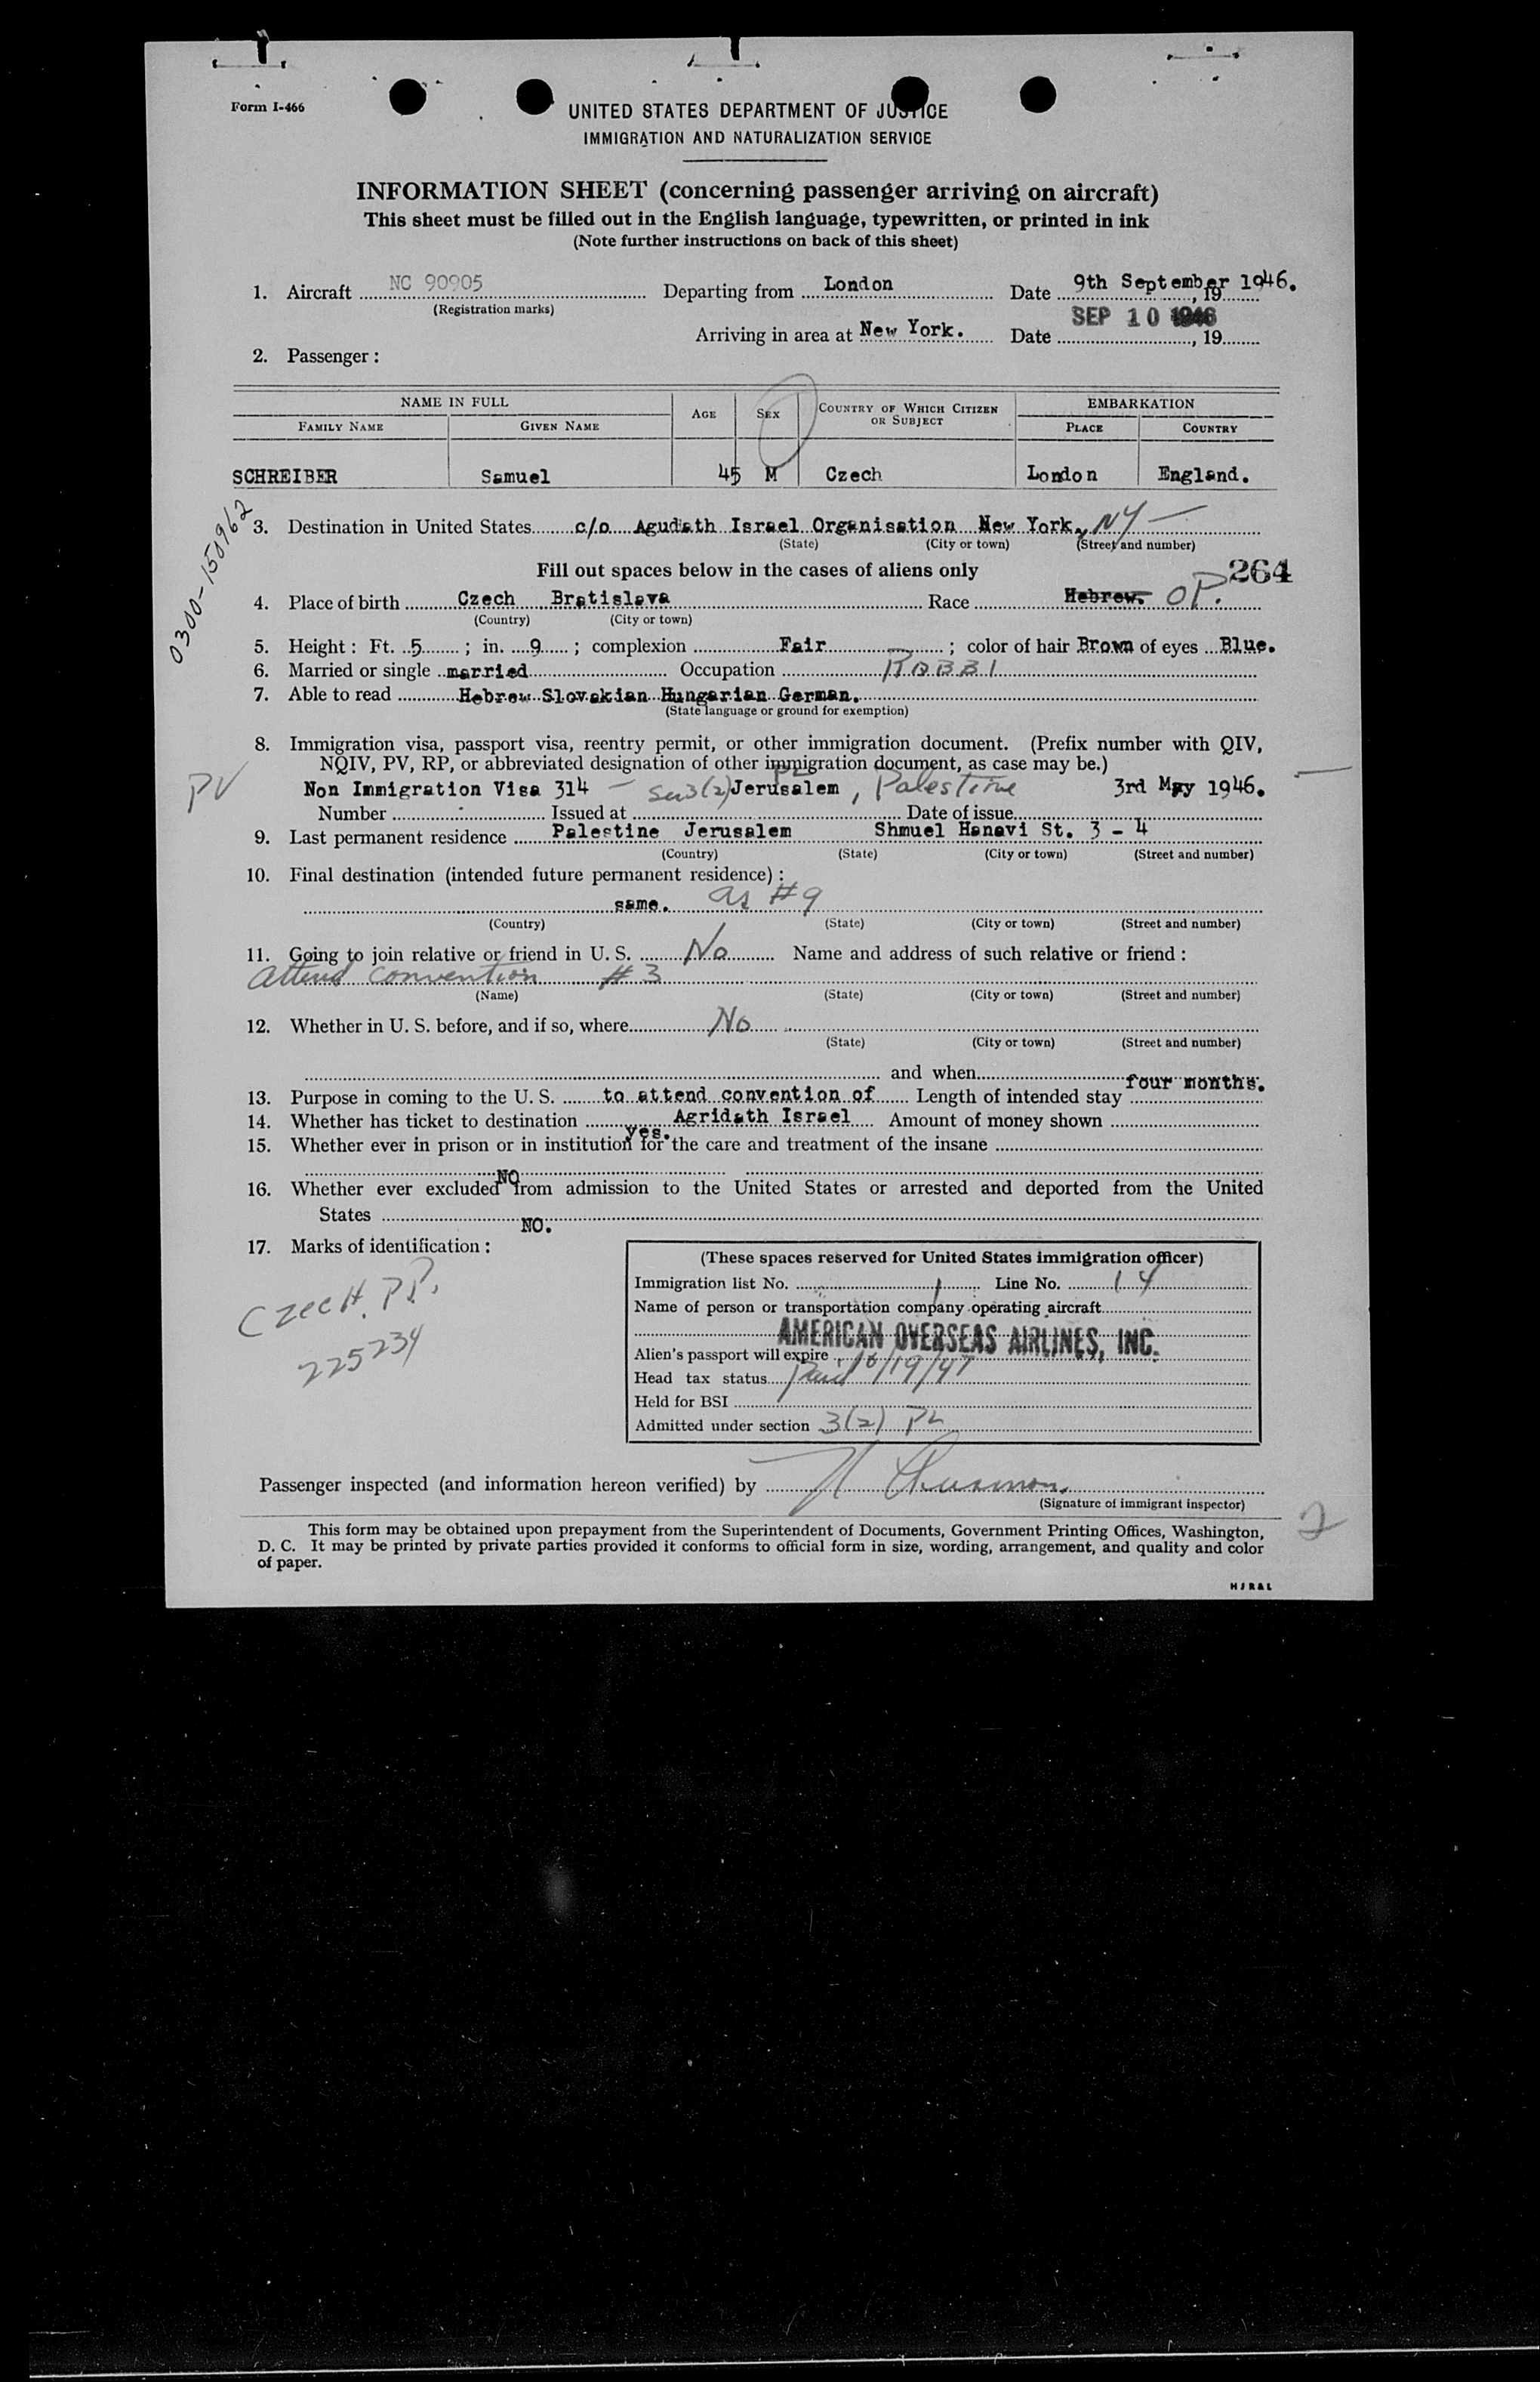 Form I-466
UNITED STATES DEPARTMENT OF JUSTICE
IMMIGRATION AND NATURALIZATION SERVICE
INFORMATION SHEET (concerning passenger arriving on aircraft)
This sheet must be filled out in the English language, typewritten, or printed in ink
(Note further instructions on back of this sheet)
1. Aircraft NC 90905 Departing from London Date 9th September 1946. , 19
(Registration marks)
Arriving in area at New York. Date SEP 10 1946 , 19
2. Passenger:
NAME IN FULL AGE SEX COUNTRY OF WHICH CITIZEN OR SUBJECT EMBARKATION
FAMILY NAME GIVEN NAME PLACE COUNTRY
SCHREIBER Samuel 45 M Czech London England.
0300-150962
3. Destination in United States c/o Agudath Israel Organisation New York, NY
(State) (City or town) (Street and number)
Fill out spaces below in the cases of aliens only 264
4. Place of birth Czech Bratislava Race Hebrew. OP.
(Country) (City or town)
5. Height: Ft. 5 ; in. 9 ; complexion Fair ; color of hair Brown of eyes Blue.
6. Married or single married Occupation RABBI
7. Able to read Hebrew Slovakian Hungarian German.
(State language or ground for exemption)
8. Immigration visa, passport visa, reentry permit, or other immigration document. (Prefix number with QIV,
NQIV, PV, RP, or abbreviated designation of other immigration document, as case may be.)
PV Non Immigration Visa 314 — Sec 3(2) PL Jerusalem, Palestine 3rd May 1946.
Number Issued at Date of issue
9. Last permanent residence Palestine Jerusalem Shmuel Hanavi St. 3 - 4
(Country) (State) (City or town) (Street and number)
10. Final destination (intended future permanent residence):
same. as #9
(Country) (State) (City or town) (Street and number)
11. Going to join relative or friend in U. S. No Name and address of such relative or friend:
attend convention #3
(Name) (State) (City or town) (Street and number)
12. Whether in U. S. before, and if so, where No
(State) (City or town) (Street and number)
and when
13. Purpose in coming to the U. S. to attend convention of Length of intended stay four months.
14. Whether has ticket to destination yes. Agridath Israel Amount of money shown
15. Whether ever in prison or in institution for the care and treatment of the insane
NO
16. Whether ever excluded from admission to the United States or arrested and deported from the United
States NO.
17. Marks of identification:
CZECH. PP.
225234
(These spaces reserved for United States immigration officer)
Immigration list No. 1 Line No. 14
Name of person or transportation company operating aircraft
AMERICAN OVERSEAS AIRLINES, INC.
Alien's passport will expire 10/19/47
Head tax status Paid
Held for BSI
Admitted under section 3(2) PL
Passenger inspected (and information hereon verified) by
(Signature of immigrant inspector)
2
This form may be obtained upon prepayment from the Superintendent of Documents, Government Printing Offices, Washington,
D. C. It may be printed by private parties provided it conforms to official form in size, wording, arrangement, and quality and color
of paper.
HJR&L